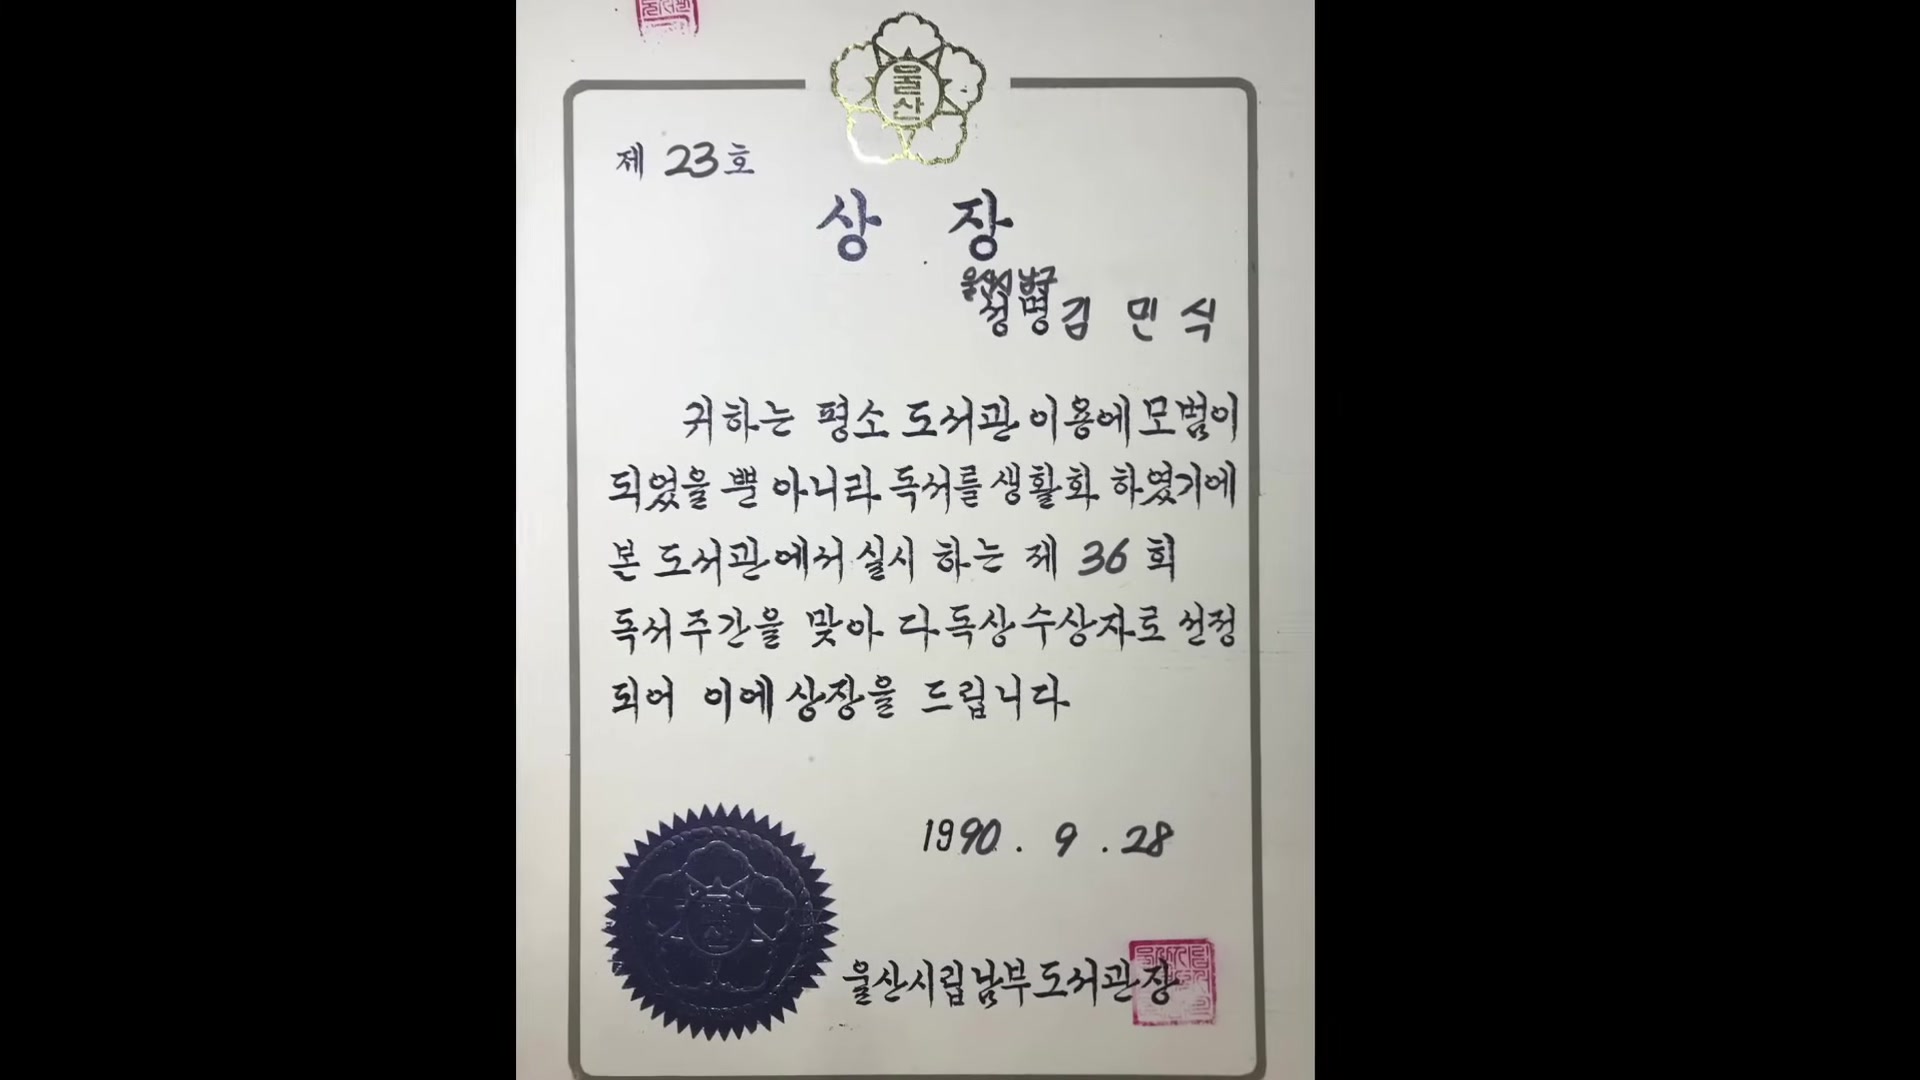 울산
제 23 호
상 장
울산시 남구
성명 김 민 식
귀하는 평소 도서관 이용에 모범이
되었을 뿐 아니라 독서를 생활화 하였기에
본 도서관에서 실시 하는 제 36 회
독서주간을 맞아 다독상 수상자로 선정
되어 이에 상장을 드립니다
1990 . 9 . 28
울산시립남부도서관장